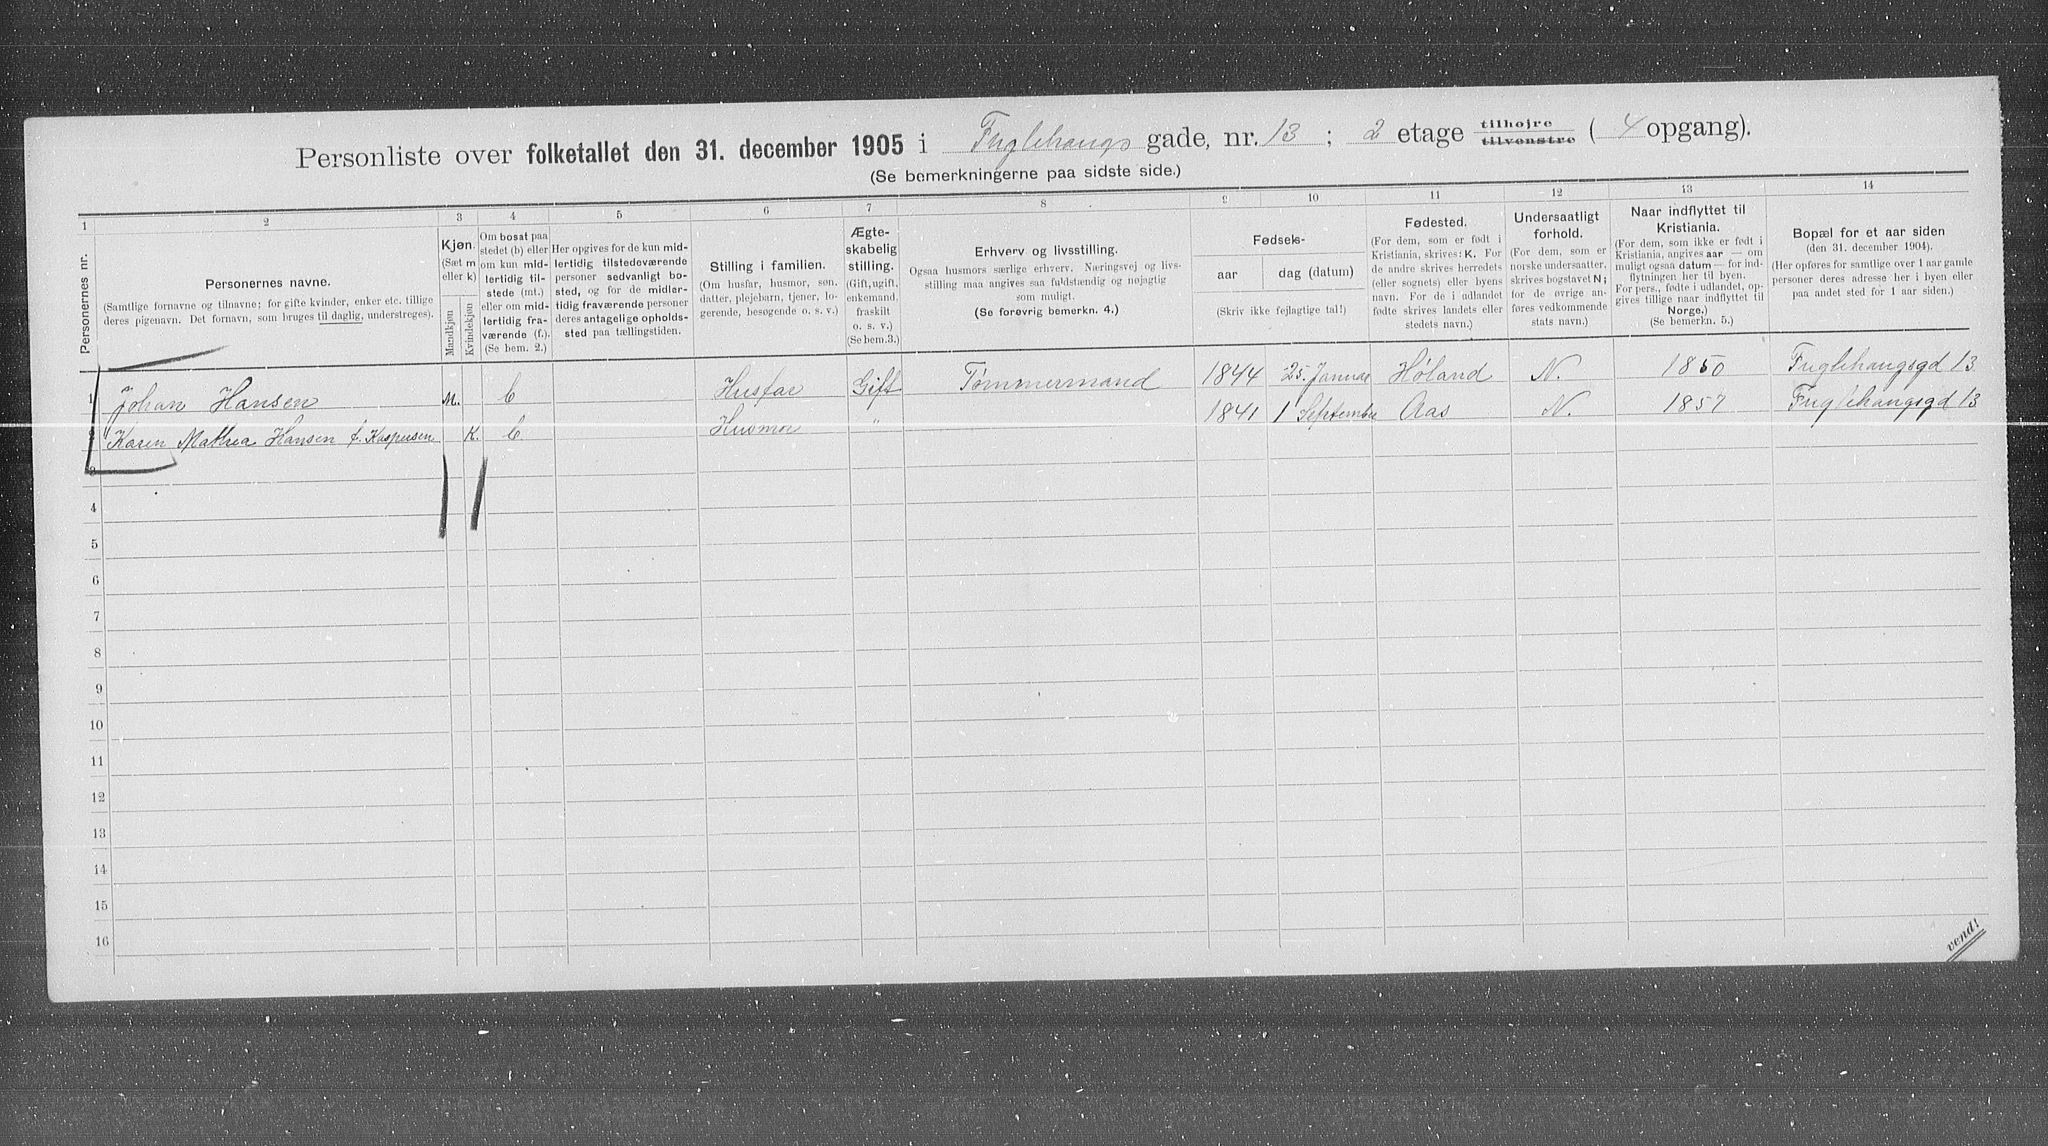 Personliste over folketallet den 31. december 1905 i Fuglehaugs gade, nr. 13 ; 2 etage tilhøjre tilvenstre ( 4 opgang).
(Se bemerkningerne paa sidste side.)
1 2 3 4 5 6 7 8 9 10 11 12 13 14
Personernes nr.
Personernes navne.
(Samtlige fornavne og tilnavne; for gifte kvinder, enker etc. tillige
deres pigenavn. Det fornavn, som bruges til daglig, understreges).
Kjøn.
(Sæt m
eller k)
Mandkjøn
Kvindekjøn
Om bosat paa
stedet (b) eller
om kun midlertidig
tilstede (mt.)
eller om midlertidig
fraværende (f.).
(Se bem. 2.)
Her opgives for de kun midlertidig
tilstedeværende
personer sedvanligt bosted,
og for de midlertidig
fraværende personer
deres antagelige opholdssted
paa tællingstiden.
Stilling i familien.
(Om husfar, husmor, søn,
datter, plejebarn, tjener, logerende,
besøgende o. s. v.)
Ægteskabelig
stilling.
(Gift, ugift,
enkemand,
fraskilt
o. s. v.)
(Se bem.3.)
Erhverv og livsstilling.
Ogsaa husmors særlige erhverv. Næringsvej og livsstilling
maa angives saa fuldstændig og nøjagtig
som muligt.
(Se forøvrig bemerkn. 4.)
Fødsels-
aar dag (datum)
(Skriv ikke fejlagtige tal!)
Fødested.
(For dem, som er født i
Kristiania, skrives: K. For
de andre skrives herredets
(eller sognets) eller byens
navn. For de i udlandet
fødte skrives landets eller
stedets navn.)
Undersaatligt
forhold.
(For dem, som er
norske undersaatter,
skrives bogstavet N;
for de øvrige anføres
vedkommende
stats navn.)
Naar indflyttet til
Kristiania.
(For dem, som ikke er født i
Kristiania, angives aar — om
muligt ogsaa datum — for indflytningen
her til byen.
For pers., født i udlandet, opgives
tillige naar indflyttet til
Norge.)
(Se bemerkn. 5.)
Bopæl for et aar siden
(den 31. december 1904).
(Her opføres for samtlige over 1 aar gamle
personer deres adresse her i byen eller
paa andet sted for 1 aar siden.)
1 Johan Hansen M. b Husfar Gift Tømmermand 1844 25. Januar Høland N. 1850 Fuglehaugsgd 13
2 Karen Mathea Hansen f. Kaspersen K. b Husmor " 1841 1 September Aas N. 1857 Fuglehaugsgd 13
3
4
5
6
7
8
9
10
11
12
13
14
15
16
vend!